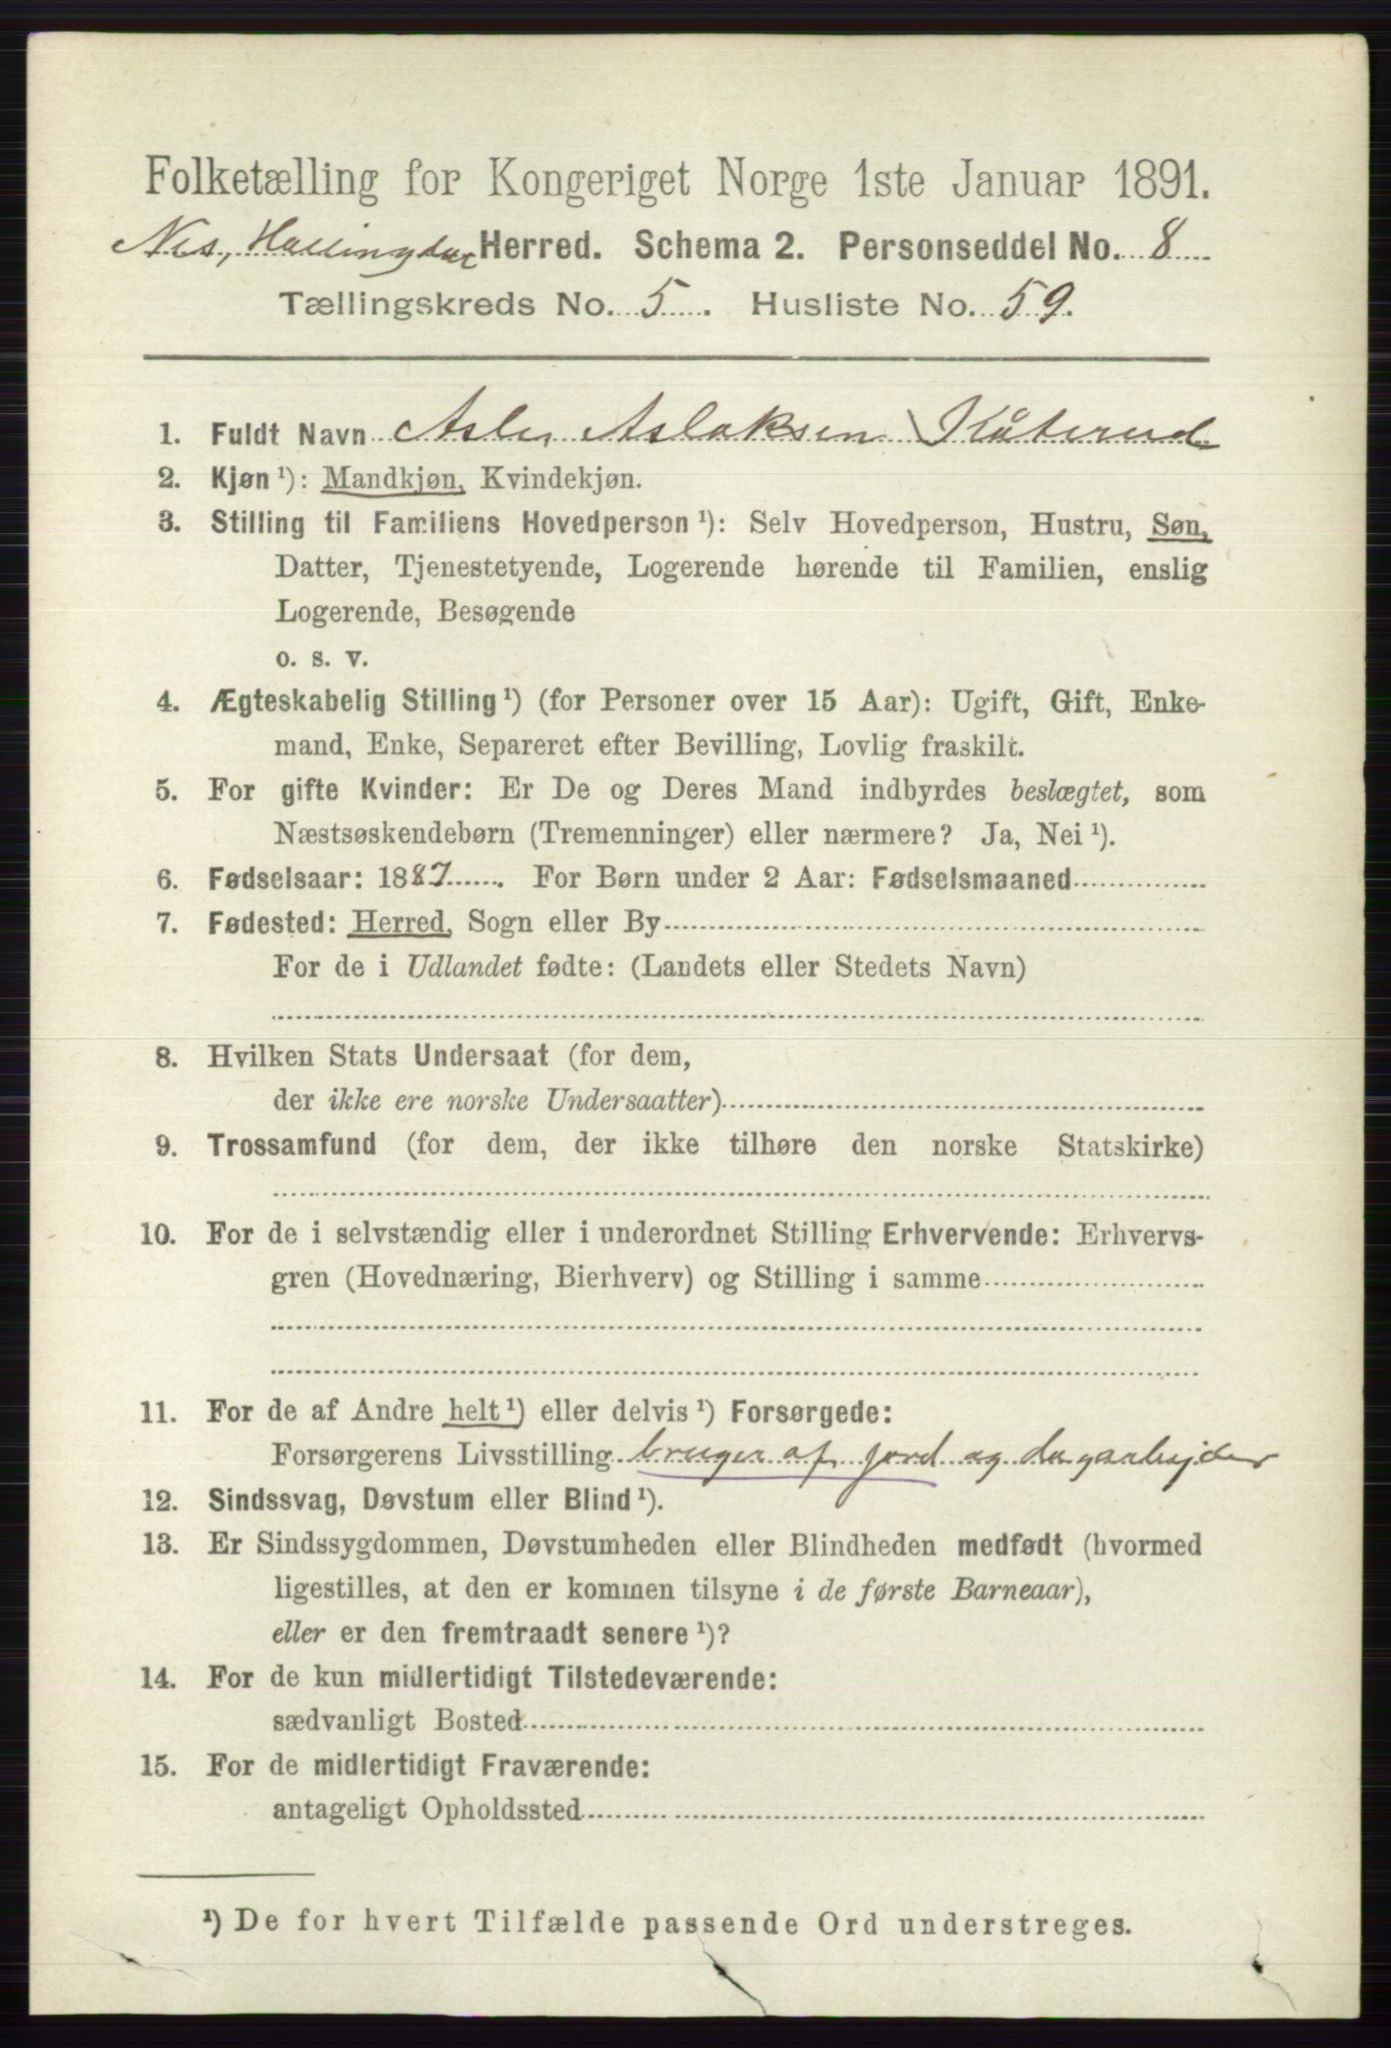 Folketælling for Kongeriget Norge 1ste Januar 1891.
Nes, Hallingdal Herred. Schema 2. Personseddel No. 8
Tællingskreds No. 5. Husliste No. 59.
1. Fuldt Navn Asle Aslaksen Kåterud
2. Kjøn ¹): Mandkjøn, Kvindekjøn.
3. Stilling til Familiens Hovedperson ¹): Selv Hovedperson, Hustru, Søn,
Datter, Tjenestetyende, Logerende hørende til Familien, enslig
Logerende, Besøgende
o. s. v.
4. Ægteskabelig Stilling ¹) (for Personer over 15 Aar): Ugift, Gift, Enke-
mand, Enke, Separeret efter Bevilling, Lovlig fraskilt.
5. For gifte Kvinder: Er De og Deres Mand indbyrdes beslægtet, som
Næstsøskendebørn (Tremenninger) eller nærmere? Ja, Nei ¹).
6. Fødselsaar: 1887. For Børn under 2 Aar: Fødselsmaaned
7. Fødested: Herred, Sogn eller By
For de i Udlandet fødte: (Landets eller Stedets Navn)
8. Hvilken Stats Undersaat (for dem,
der ikke ere norske Undersaatter)
9. Trossamfund (for dem, der ikke tilhøre den norske Statskirke)
10. For de i selvstændig eller i underordnet Stilling Erhvervende: Erhvervs-
gren (Hovednæring, Bierhverv) og Stilling i samme
11. For de af Andre helt ¹) eller delvis ¹) Forsørgede:
Forsørgerens Livsstilling bruger af jord og dagarbejder
12. Sindssvag, Døvstum eller Blind ¹).
13. Er Sindssygdommen, Døvstumheden eller Blindheden medfødt (hvormed
ligestilles, at den er kommen tilsyne i de første Barneaar),
eller er den fremtraadt senere ¹)?
14. For de kun midlertidigt Tilstedeværende:
sædvanligt Bosted
15. For de midlertidigt Fraværende:
antageligt Opholdssted
¹) De for hvert Tilfælde passende Ord understreges.